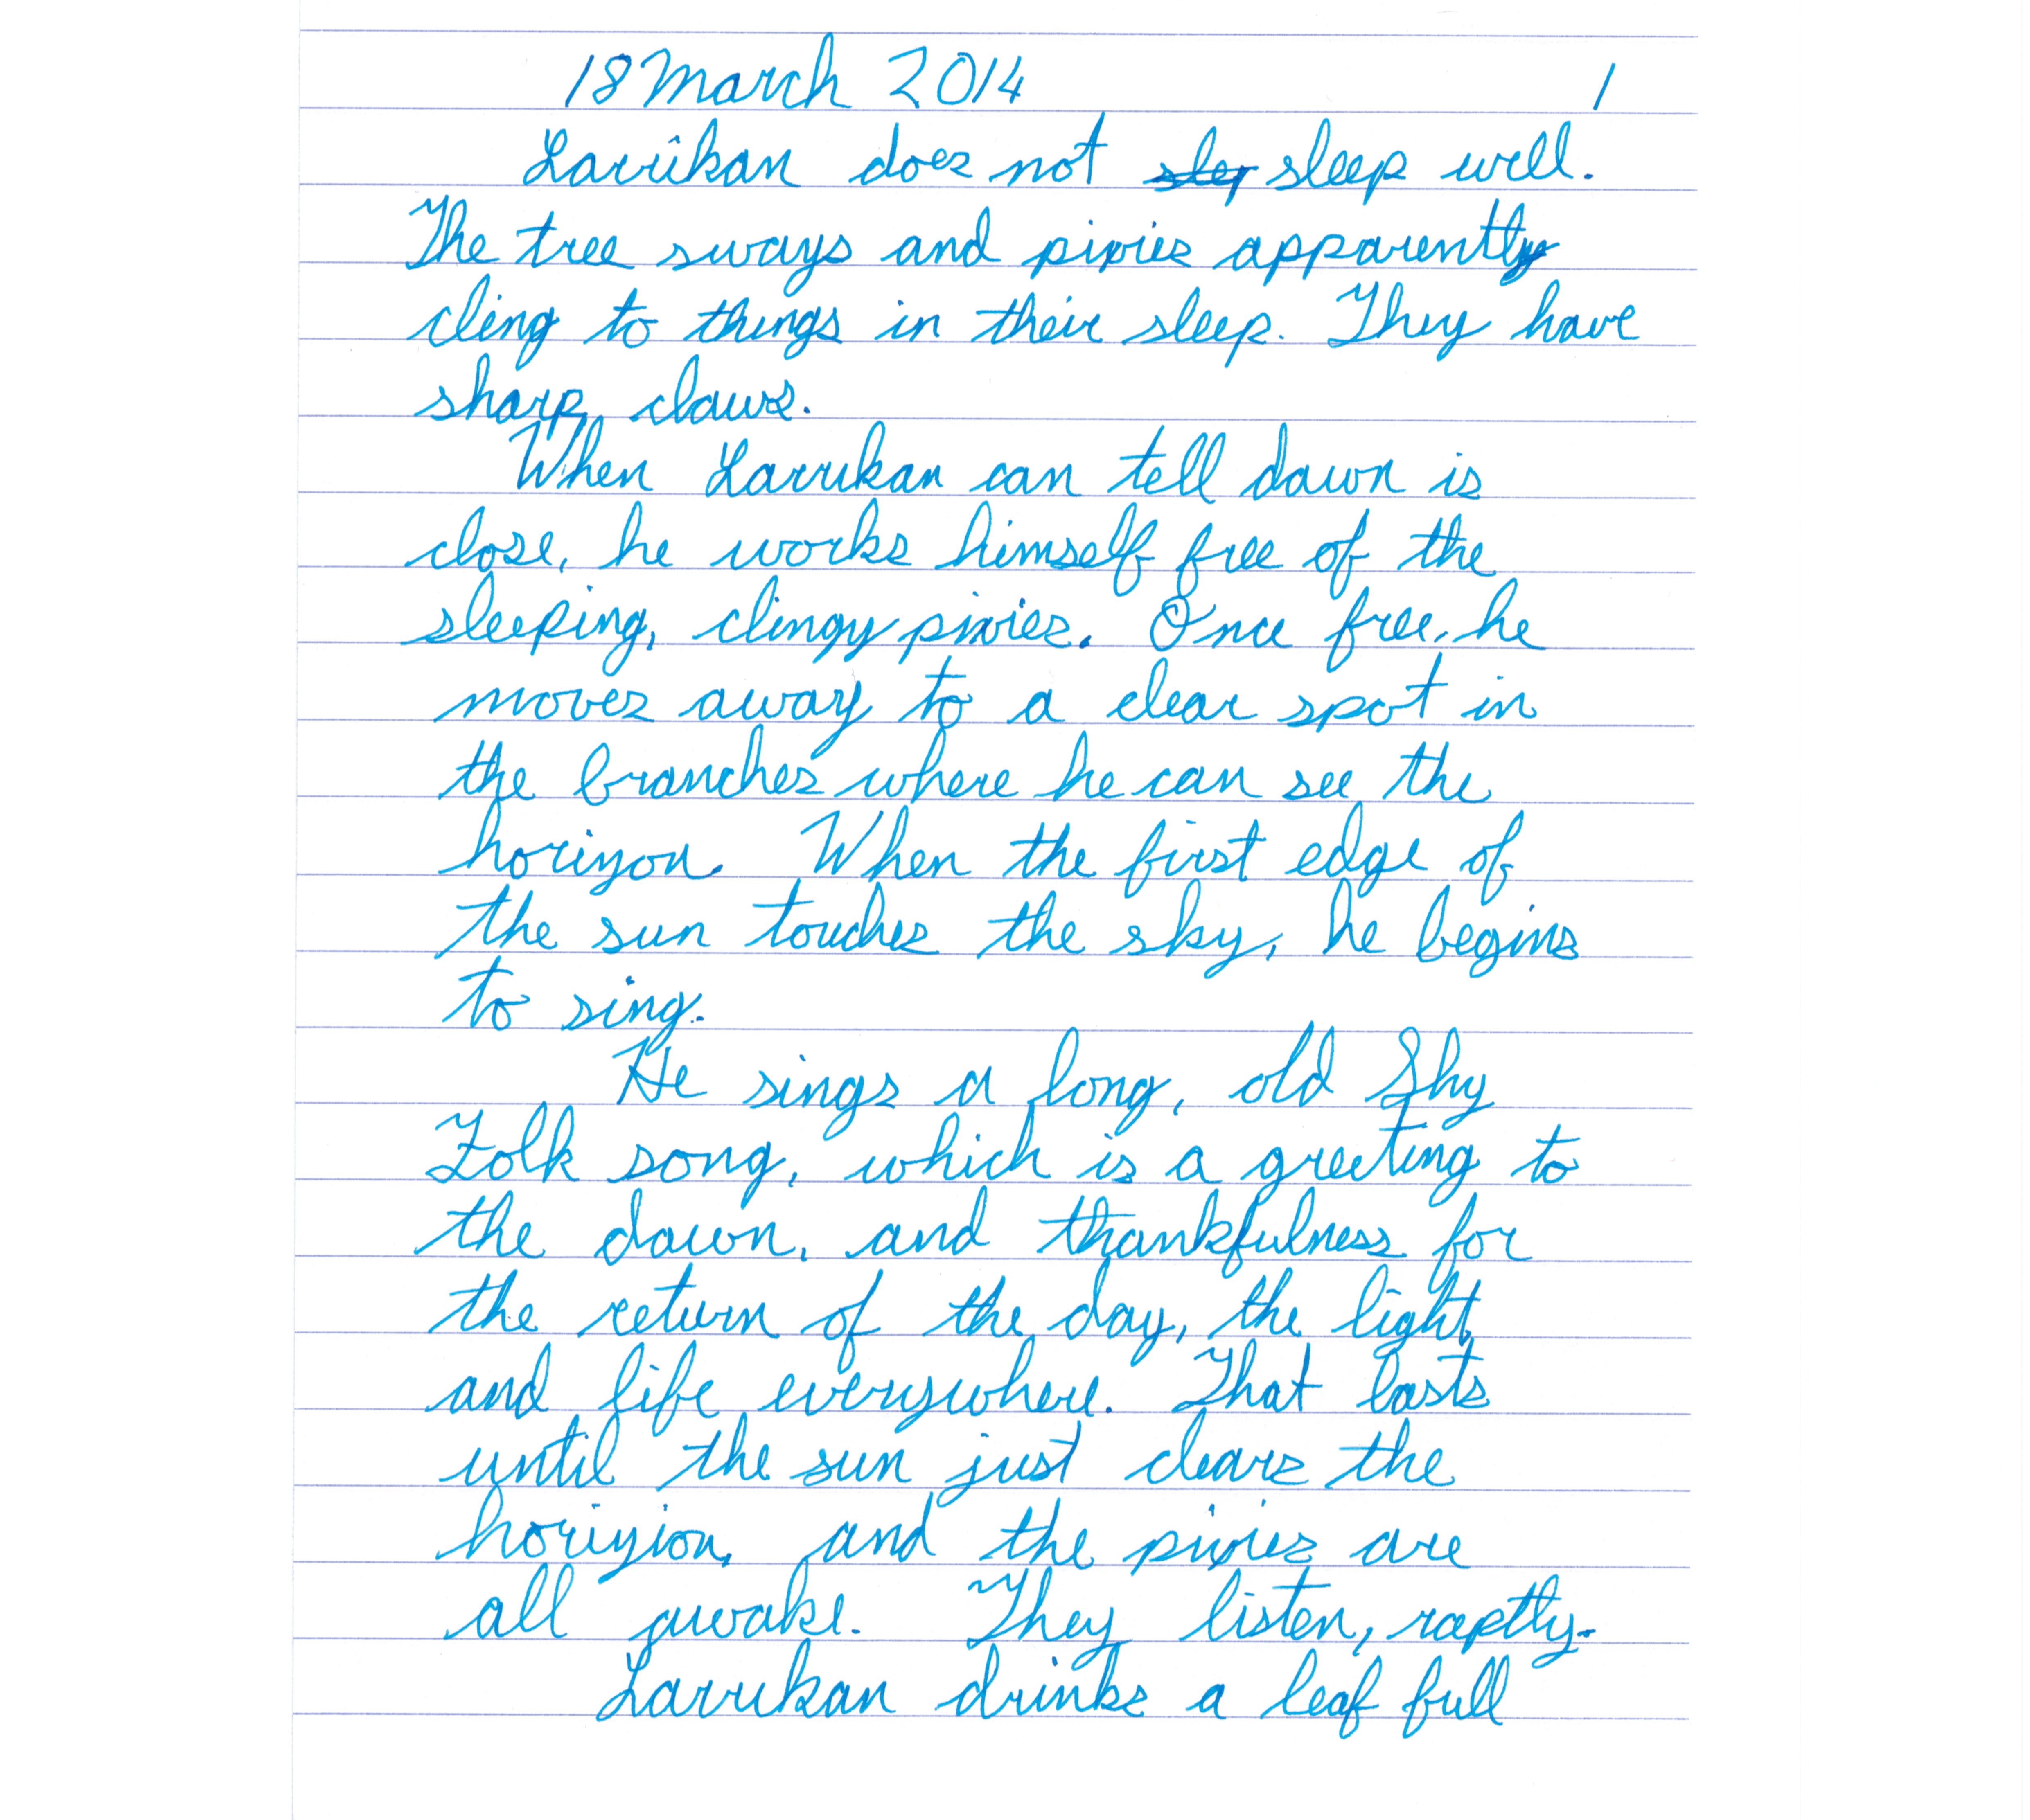 18 March 2014 1
Larrûkan does not sley sleep well.
The tree sways and pixies apparently
cling to things in their sleep. They have
sharp claws.
When Larrukan can tell dawn is
close, he works himself free of the
sleeping, clingy pixies. Once free, he
moves away to a clear spot in
the branches where he can see the
horizon. When the first edge of
the sun touches the sky, he begins
to sing.
He sings a long, old Shy
Folk song, which is a greeting to
the dawn, and thankfulness for
the return of the day, the light,
and life everywhere. That lasts
until the sun just clears the
horizion, and the pixies are
all awake. They listen, raptly.
Larrukan drinks a leaf full